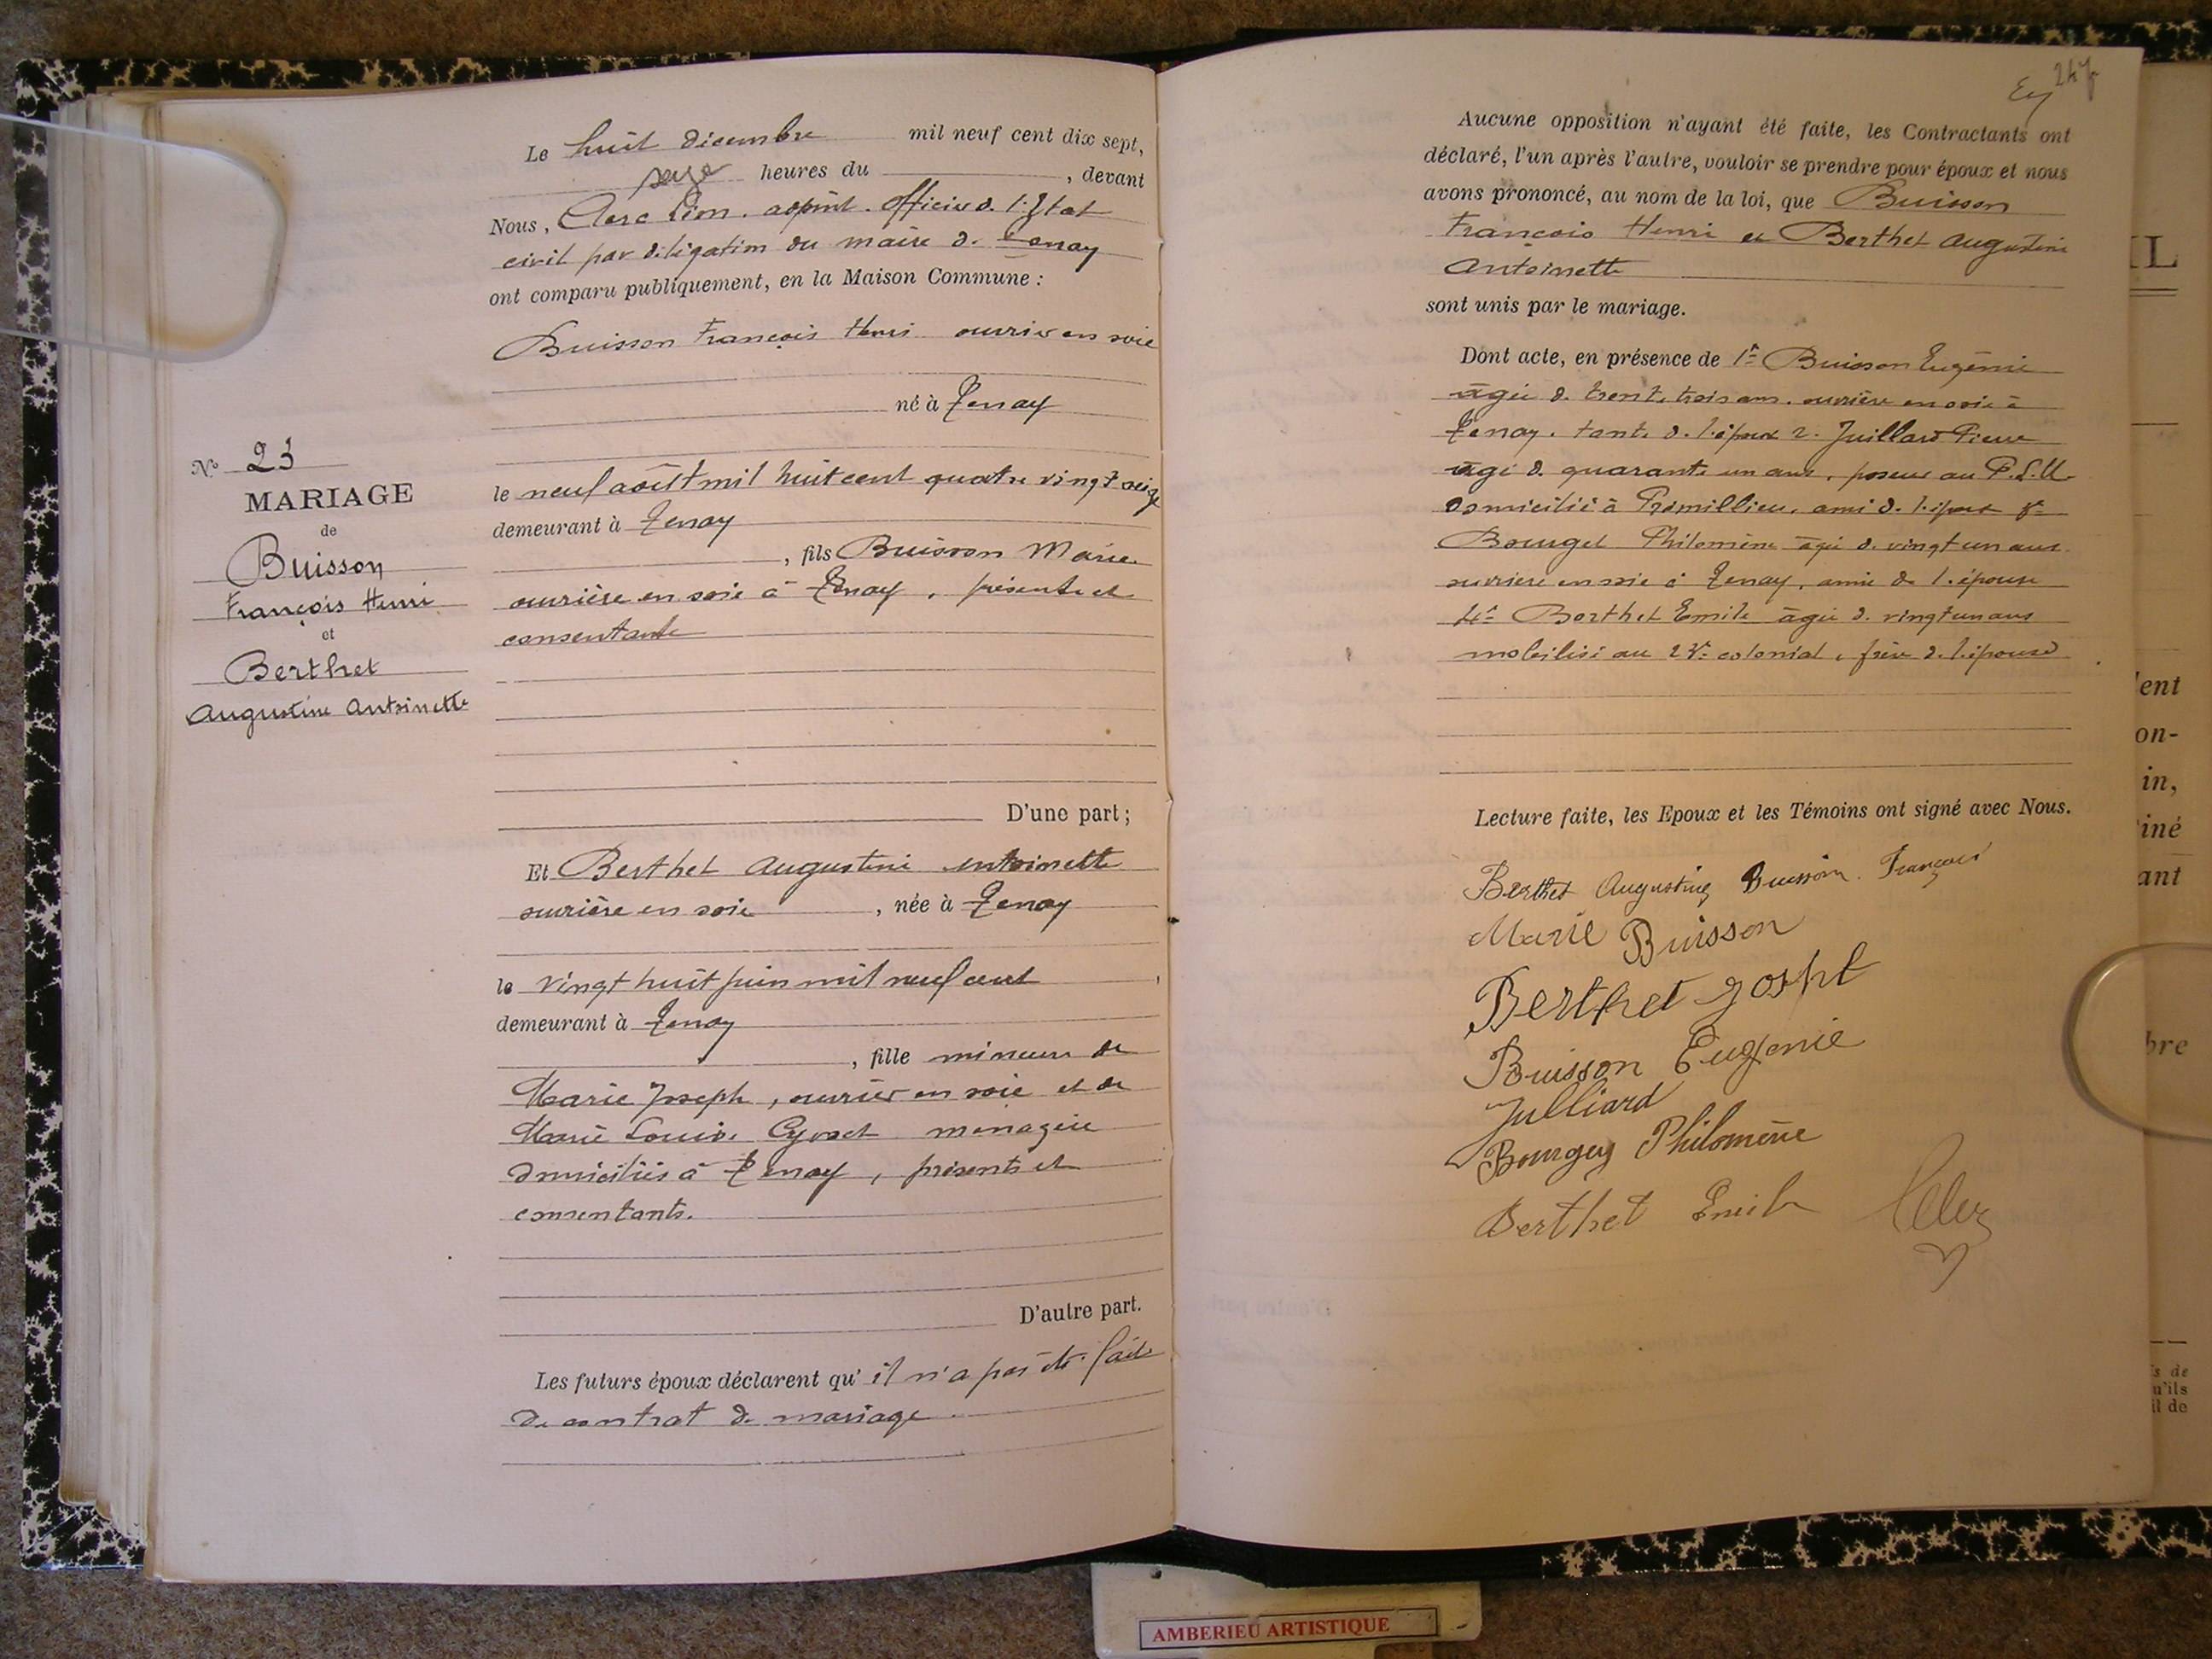 Le huit décembre mil neuf cent dix sept,
seize heures du , devant
Nous, Clerc Léon, adjoint. Officier d. l'Etat
civil par délégation du maire d. Tenay
ont comparu publiquement, en la Maison Commune :
Buisson François Henri ouvrier en soie
né à Tenay
le neuf août mil huit cent quatre vingt seize
demeurant à Tenay
, fils Buisson Marie.
ouvrière en soie à Tenay, présente et
consentante
D'une part ;
N° 23
MARIAGE
de
Buisson
François Henri
et
Berthet
Augustine Antoinette
Et Berthet Augustine Antoinette
ouvrière en soie , née à Tenay
le vingt huit juin mil neuf cent
demeurant à Tenay
, fille mineure de
Marie Joseph, ouvrier en soie et de
Marie Louise ménagère
domiciliés à Tenay, présents et
consentants.
D'autre part.
Les futurs époux déclarent qu' il n'a pas été fait
de contrat de mariage
247
Aucune opposition n'ayant été faite, les Contractants ont
déclaré, l'un après l'autre, vouloir se prendre pour époux et nous
avons prononcé, au nom de la loi, que Buisson
François Henri et Berthet Augustine
Antoinette
sont unis par le mariage.
Dont acte, en présence de 1° Buisson Eugénie
âgée d. trente trois ans. ouvrière en soie à
Tenay. tante d. l'époux 2. Juillard Pierre
âgé d. quarante un ans, poseur au P.L.M.
domicilié à Prémillieu, ami d. l'époux 3°
Bourget Philomène âgée d. vingt un ans.
ouvrière en soie à Tenay, amie de l'épouse
4° Berthet Emile âgé d. vingt un ans
mobilisé au colonial, frère d. l'épouse
Lecture faite, les Epoux et les Témoins ont signé avec Nous.
Berthet Augustine Buisson François
Marie Buisson
Berthet Joseph
Buisson Eugenie
Julliard
Bourgey Philomène
Berthet Emile
AMBERIEU ARTISTIQUE
IL
lent
on-
in,
iné
ant
bre
s de
u'ils
il de